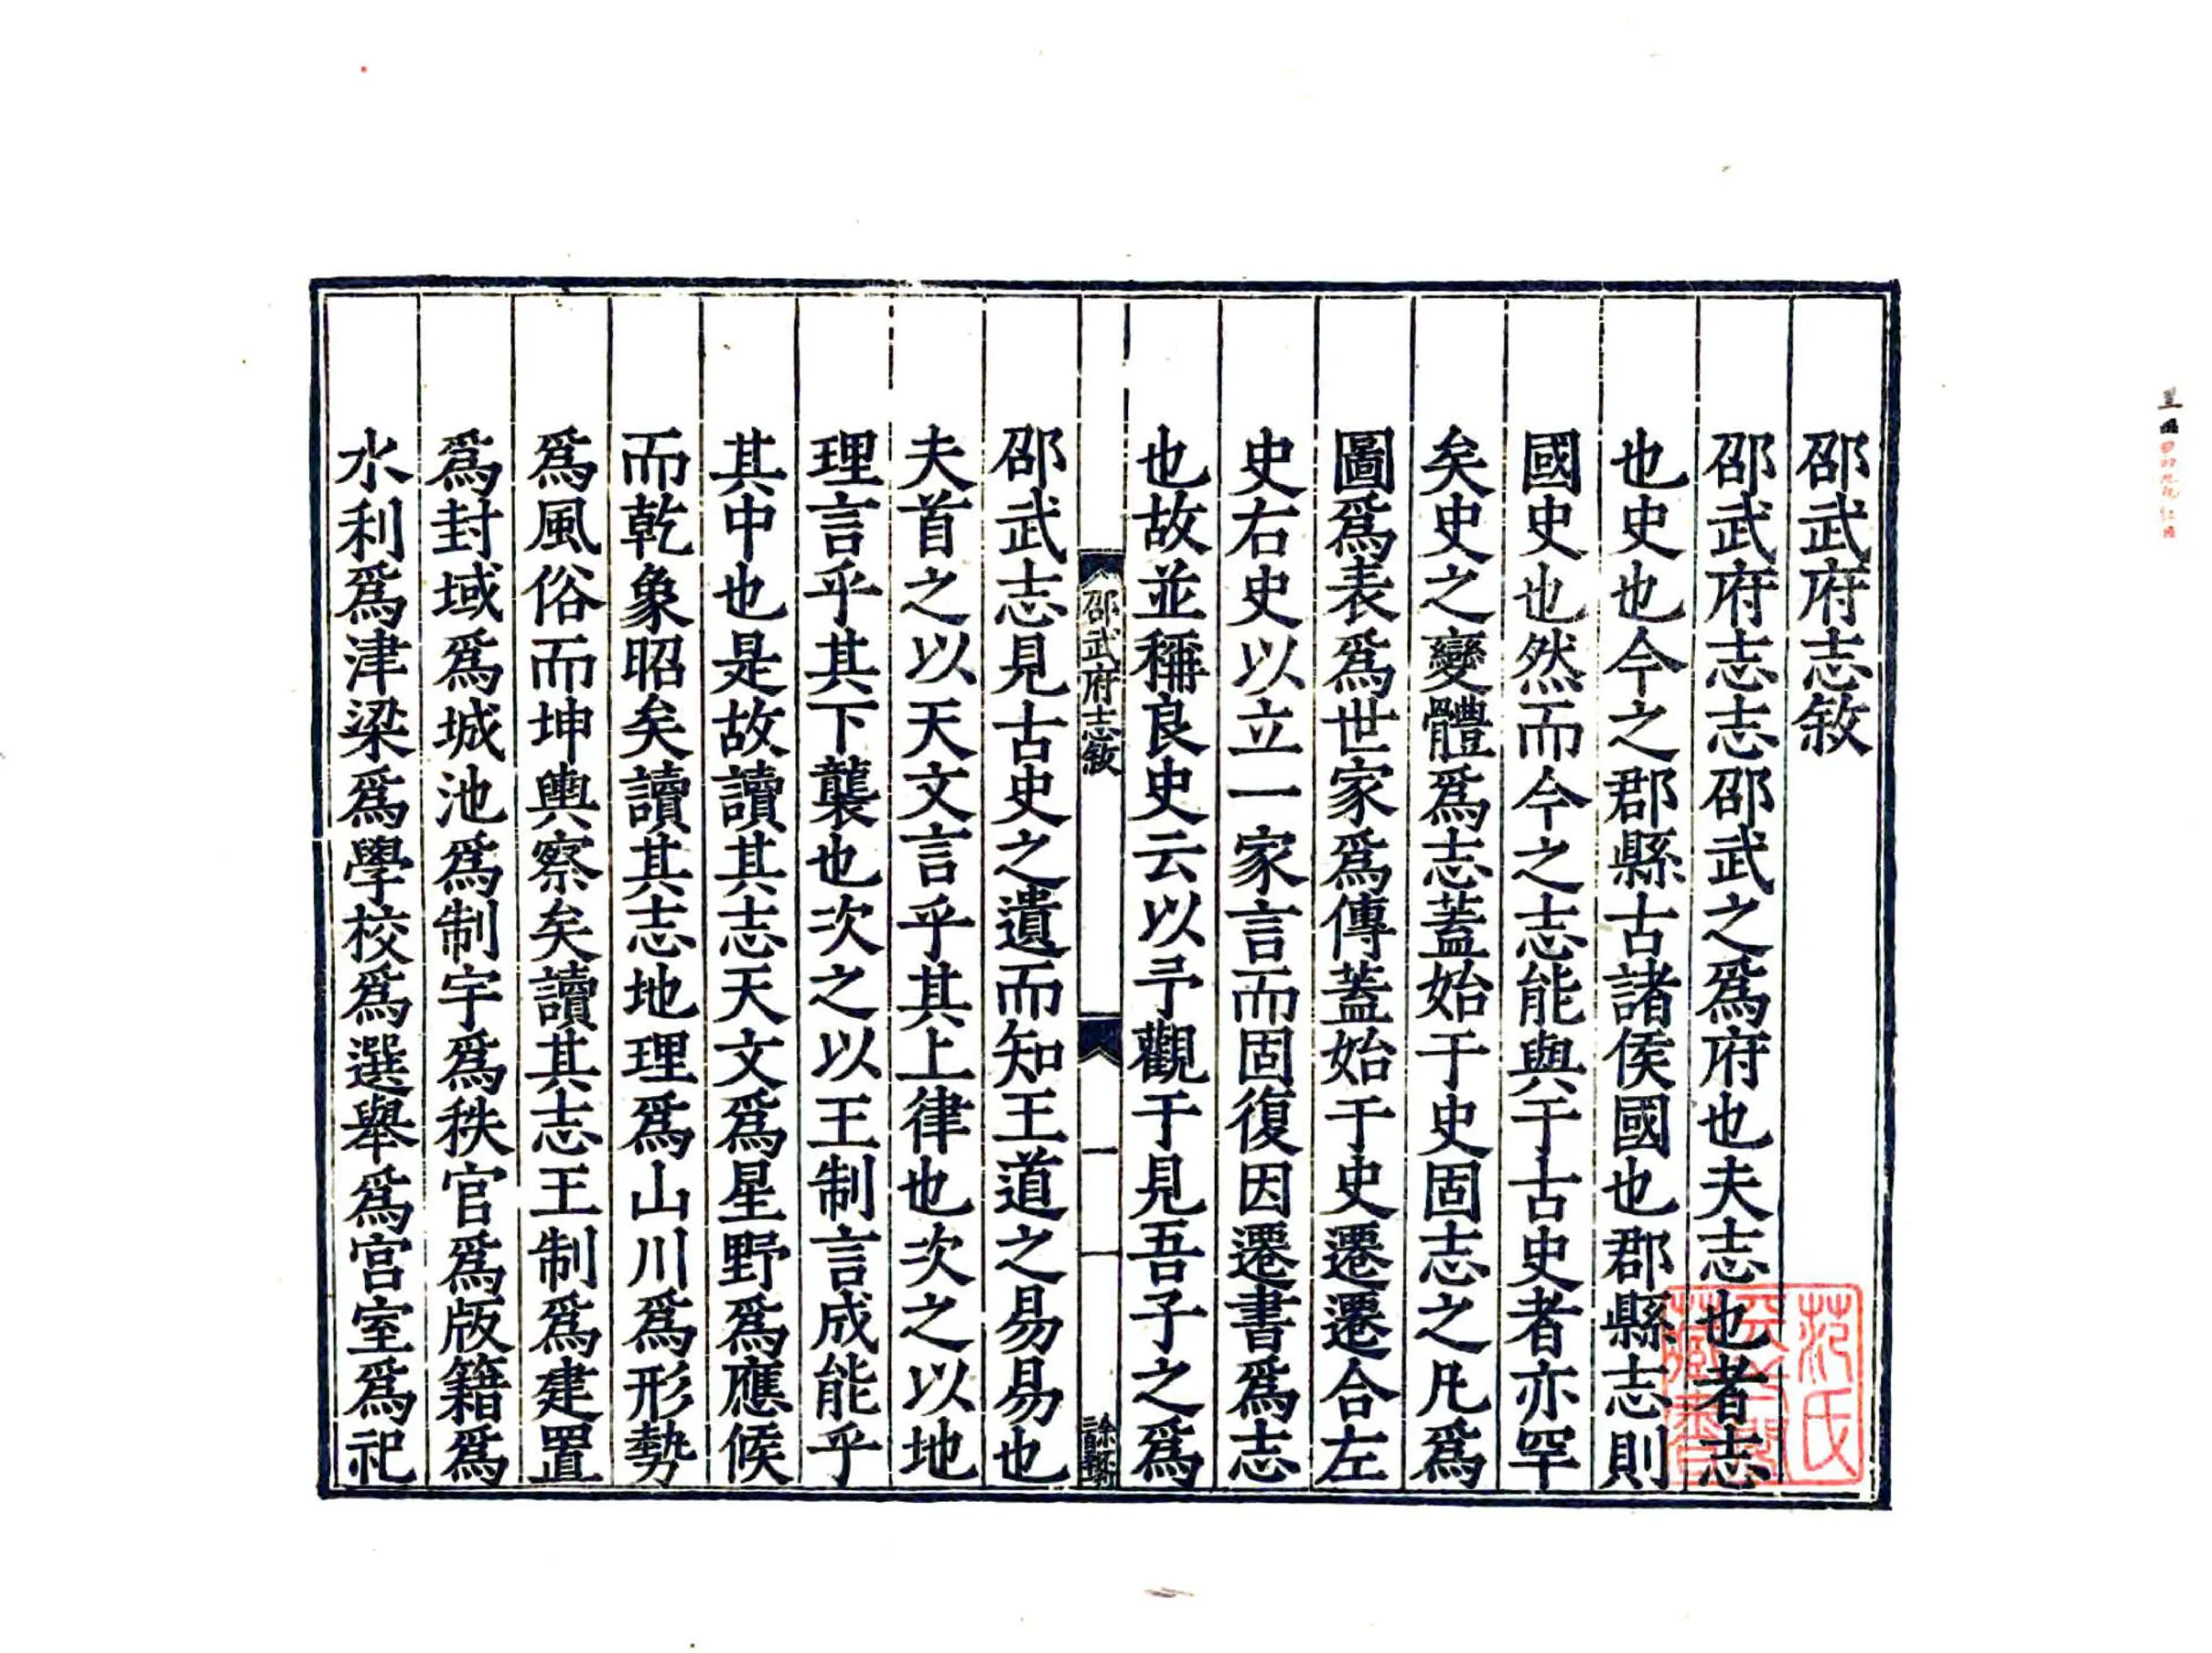 邵武府志敘
邵武府志志邵武之爲府也夫志也者志
也史也今之郡縣古諸侯國也郡縣志則
國史也然而今之志能與于古史者亦罕
矣史之變體爲志蓋始于史固志之凡爲
圖爲表爲世家爲傳蓋始于史遷遷合左
史右史以立一家言而固復因遷書爲志
也故並稱良史云以予觀于見吾子之爲
邵武府志敘
一
邵武志見古史之遺而知王道之易易也
夫首之以天文言乎其上律也次之以地
理言乎其下襲也次之以王制言成能乎
其中也是故讀其志天文爲星野爲應候
而乾象昭矣讀其志地理爲山川爲形勢
爲風俗而坤輿察矣讀其志王制爲建置
爲封域爲城池爲制宇爲秩官爲版籍爲
水利爲津梁爲學校爲選舉爲宮室爲祀
范氏
天一閣
藏書